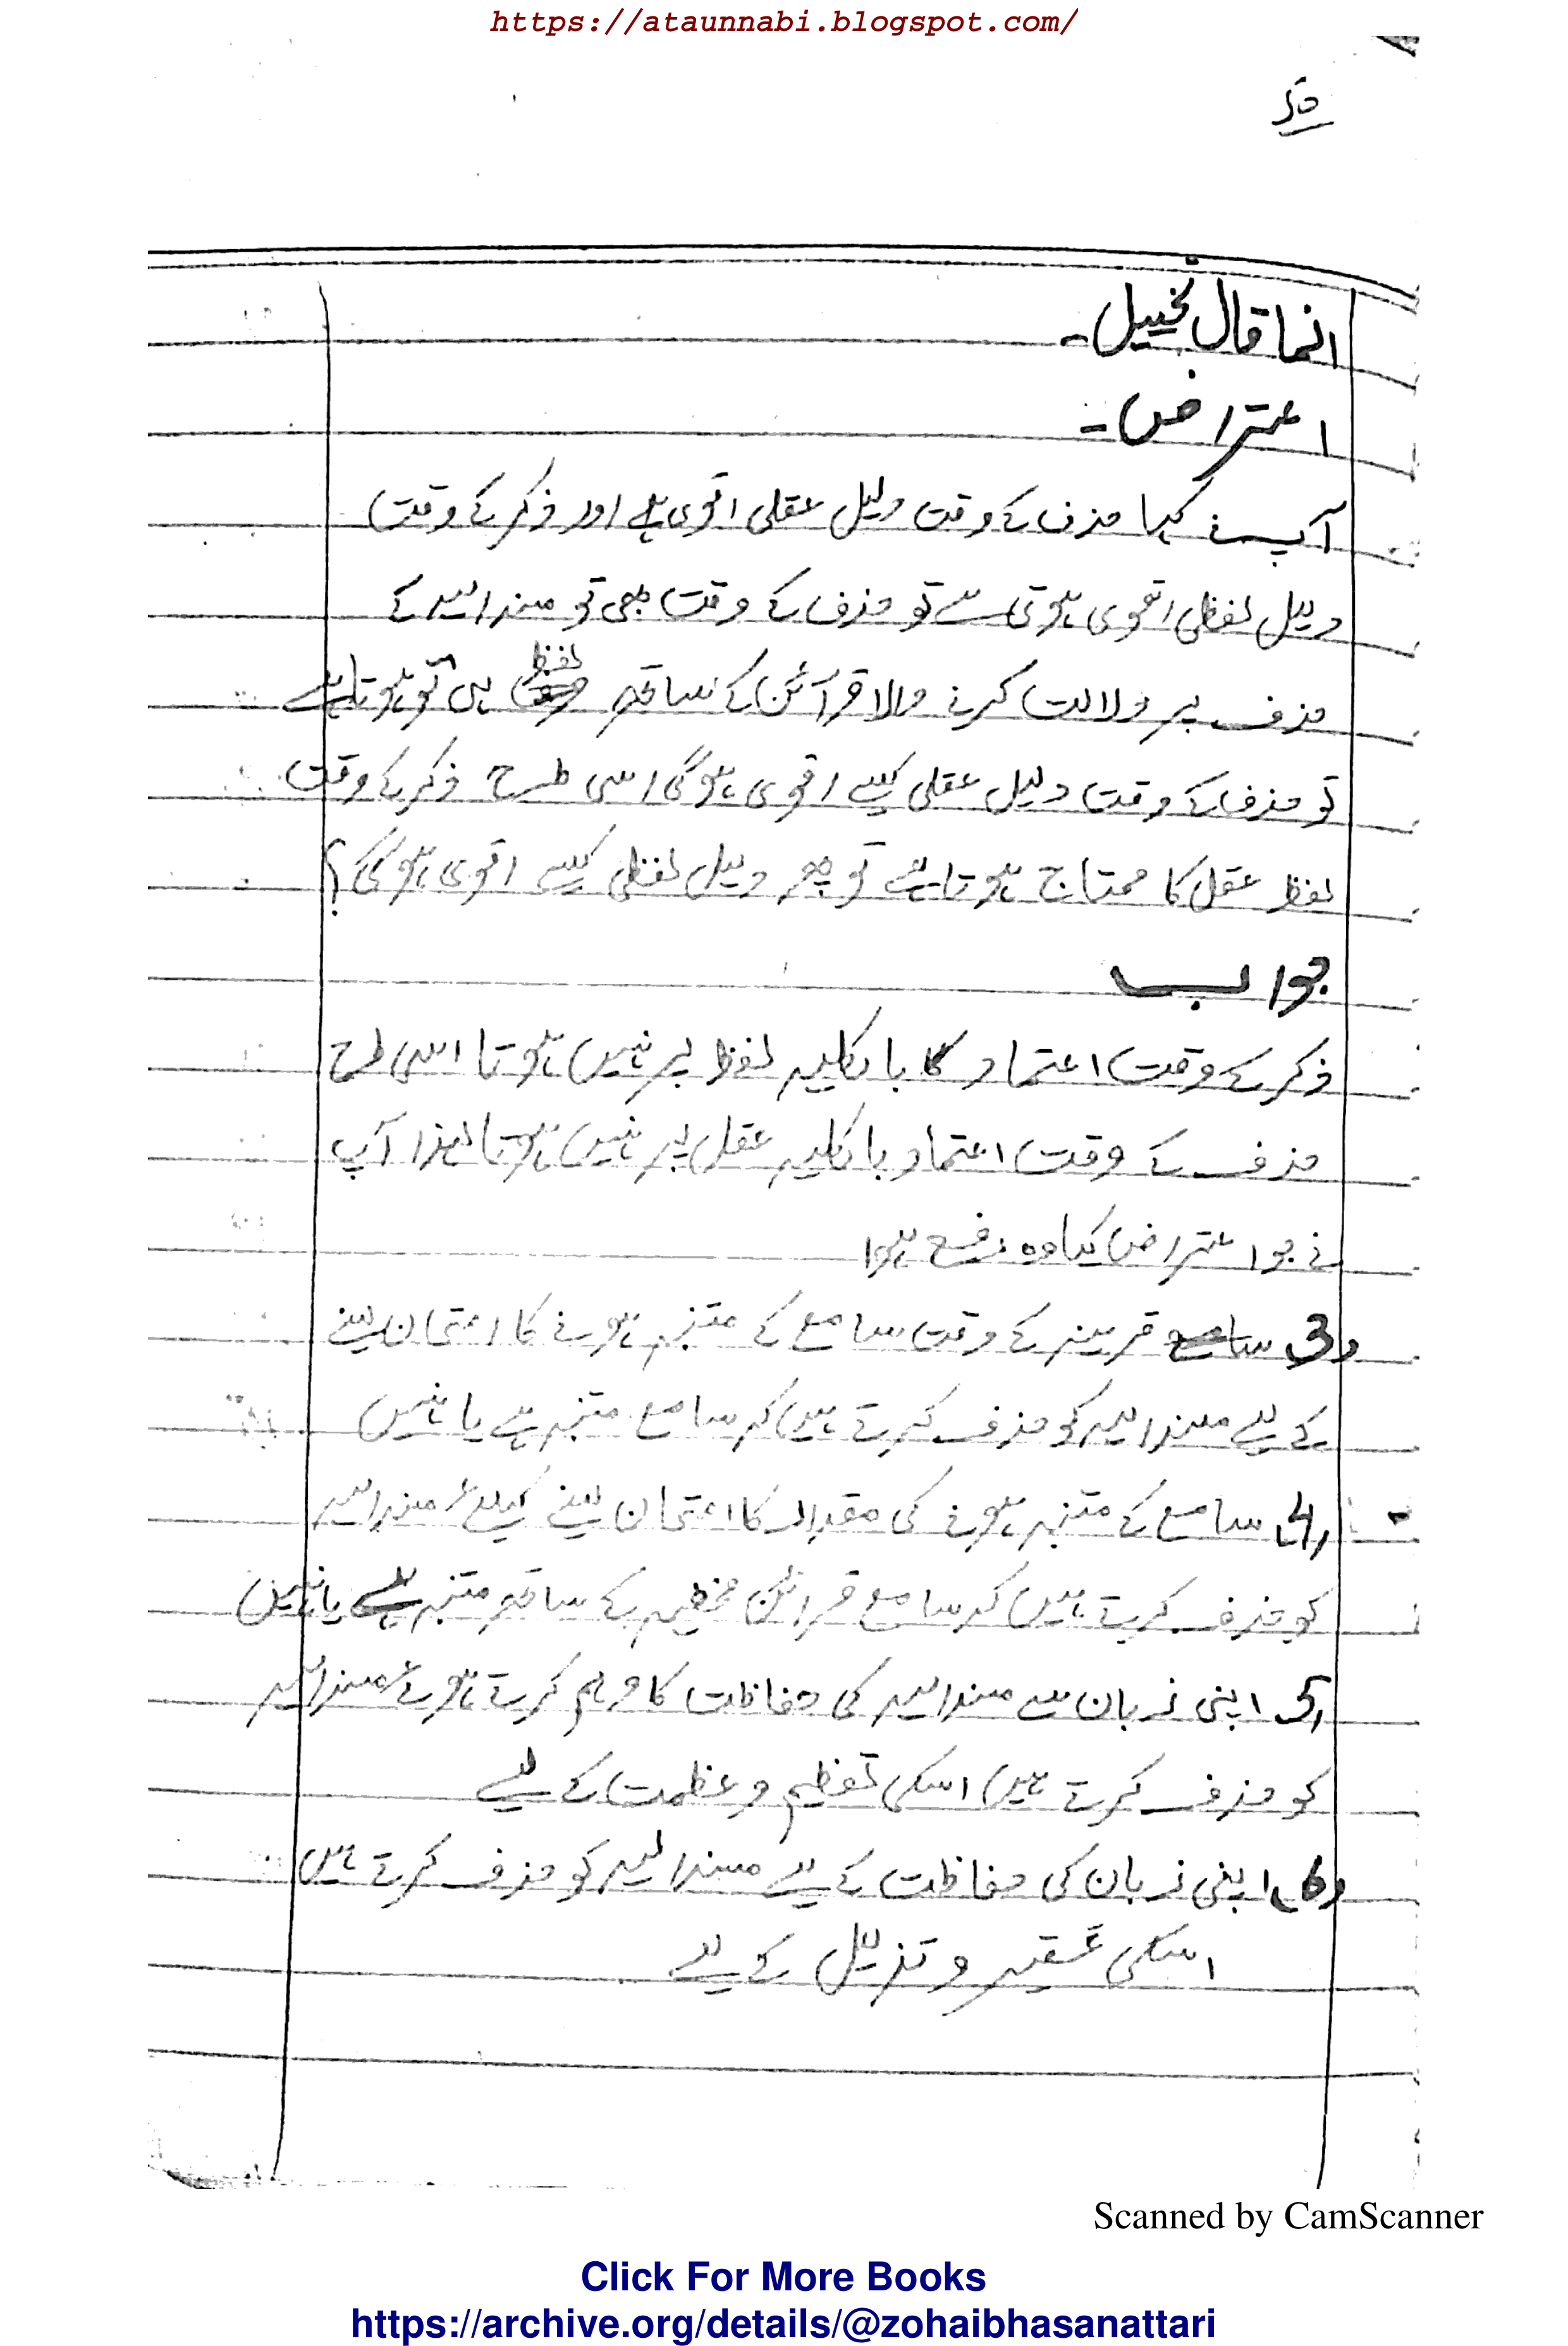 https://ataunnabi.blogspot.com/
انما قال تخییل۔
اعتراض۔
آپ نے کہا حذف کے وقت دلیل عقلی اقوی ہے اور ذکر کے وقت
دلیل لفظی اقوی ہوتی ہے تو حذف کے وقت بھی تو مسند الیہ کے
حذف پر دلالت کرنے والا قرآئن کے ساتھ لفظ ہی تو ہوتا ہے
تو حذف کے وقت دلیل عقلی کیسے اقوی ہوگی اسی طرح ذکر کے وقت
لفظ عقل کا محتاج ہوتا ہے تو پھر دلیل لفظی کیسے اقوی ہوگی؟
جواب
ذکر کے وقت اعتماد کا بالکلیہ لفظ پر نہیں ہوتا اسی طرح
حذف کے وقت اعتماد بالکلیہ عقل پر نہیں ہوتا لہذا آپ
نے جو اعتراض کیا وہ رفع ہوا
(3) قرینہ کے وقت سامع کے متنبہ ہونے کا امتحان لینے
کے لیے مسند الیہ کو حذف کرتے ہیں کہ سامع متنبہ ہے یا نہیں
(4) سامع کے متنبہ ہونے کی مقدار کا امتحان لینے کیلئے مسند الیہ
کو حذف کرتے ہیں کہ سامع قرائن مخفیہ کے ساتھ متنبہ ہے یا نہیں
(5) اپنی زبان سے مسند الیہ کی حفاظت کا وہم کرتے ہوئے مسند الیہ
کو حذف کرتے ہیں اسکی تعظیم و عظمت کے لیے
(6) اپنی زبان کی حفاظت کے لیے مسند الیہ کو حذف کرتے ہیں
اسکی تحقیر و تذلیل کے لیے
Scanned by CamScanner
Click For More Books
https://archive.org/details/@zohaibhasanattari